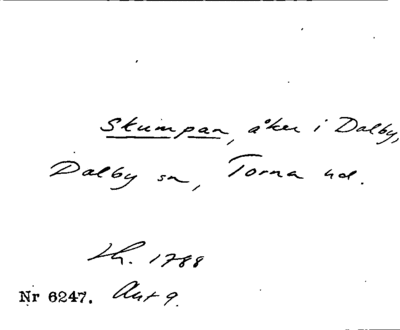 Skumpan, åker i Dalby,
Dalby sn, Torna hd.
Lh. 1788
Nr 6247. Akt 9.